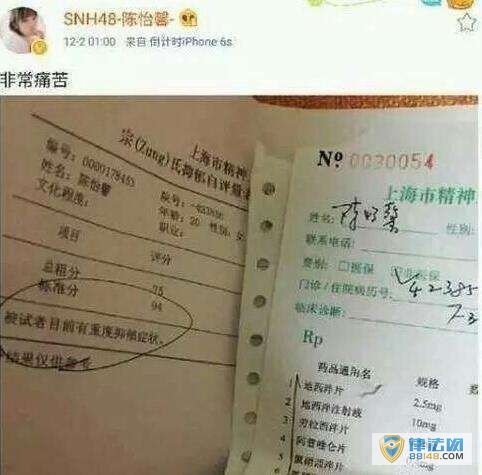 SNH48-陈怡馨-
12-2 01:00 来自 倒计时iPhone 6s
非常痛苦
上海市精神
宗(Zung)氏抑郁自评量表
编号: 0000178453
姓名: 陈怡馨
年龄: 20 性别:
文化程度:
职业:
项目 评分
总粗分 75
标准分 94
被试者目前有重度抑郁症状。
结果仅供参考
№ 0030054
上海市精神
姓名: 陈怡馨 性别:
联系电话:
费别: □医保
门诊/住院病历号:
临床诊断:
Rp
药品通用名 规格
1 地西泮片 2.5mg
地西泮注射液 10mg
劳拉西泮片
阿普唑仑片
律法网
8848.com